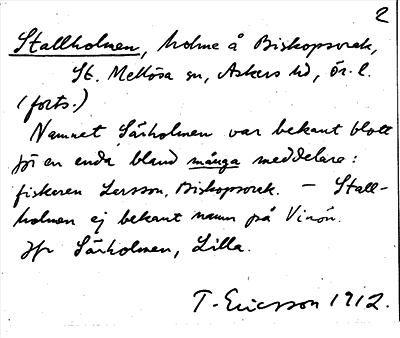 2
Stallholmen, holme å Biskopsvrak,
St. Mellösa sn, Askers hd, Ör. l.
(forts.)
Namnet Särholmen var bekant blott
för en enda bland många meddelare:
fiskeren Larsson, Biskopsvrak. – Stall-
holmen ej bekant namn på Vinön.
Jfr Särholmen, Lilla.
T. Ericsson 1912.